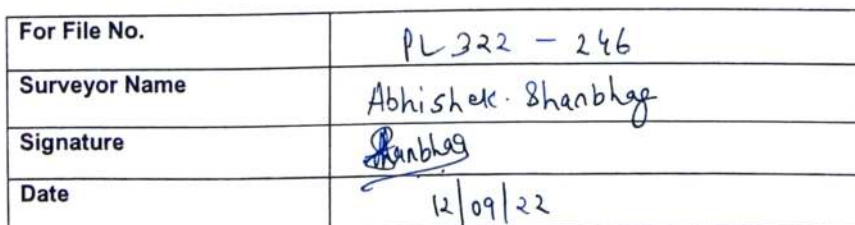 For File No. PL322 - 246
Surveyor Name Abhishek. Shanbhag
Signature Shanbhag
Date 12/09/22